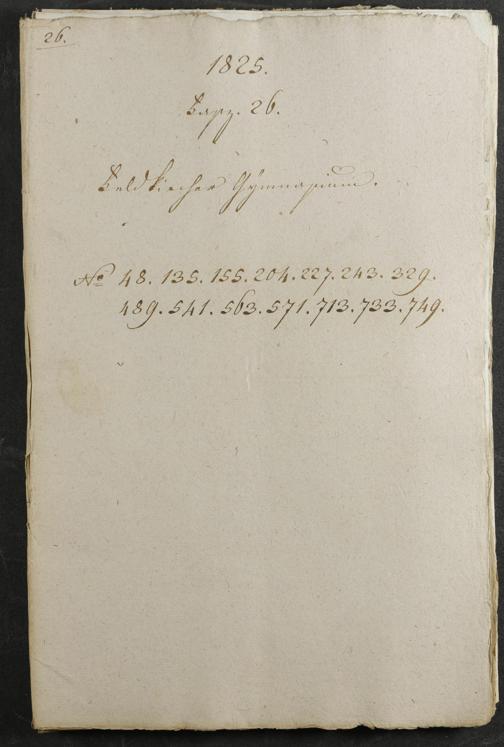 26.
1825.
Fasz. 26.
Feldkircher Gymnasium.
No 48. 135. 155. 204. 227. 243. 329.
489. 541. 563. 571. 713. 733. 749.